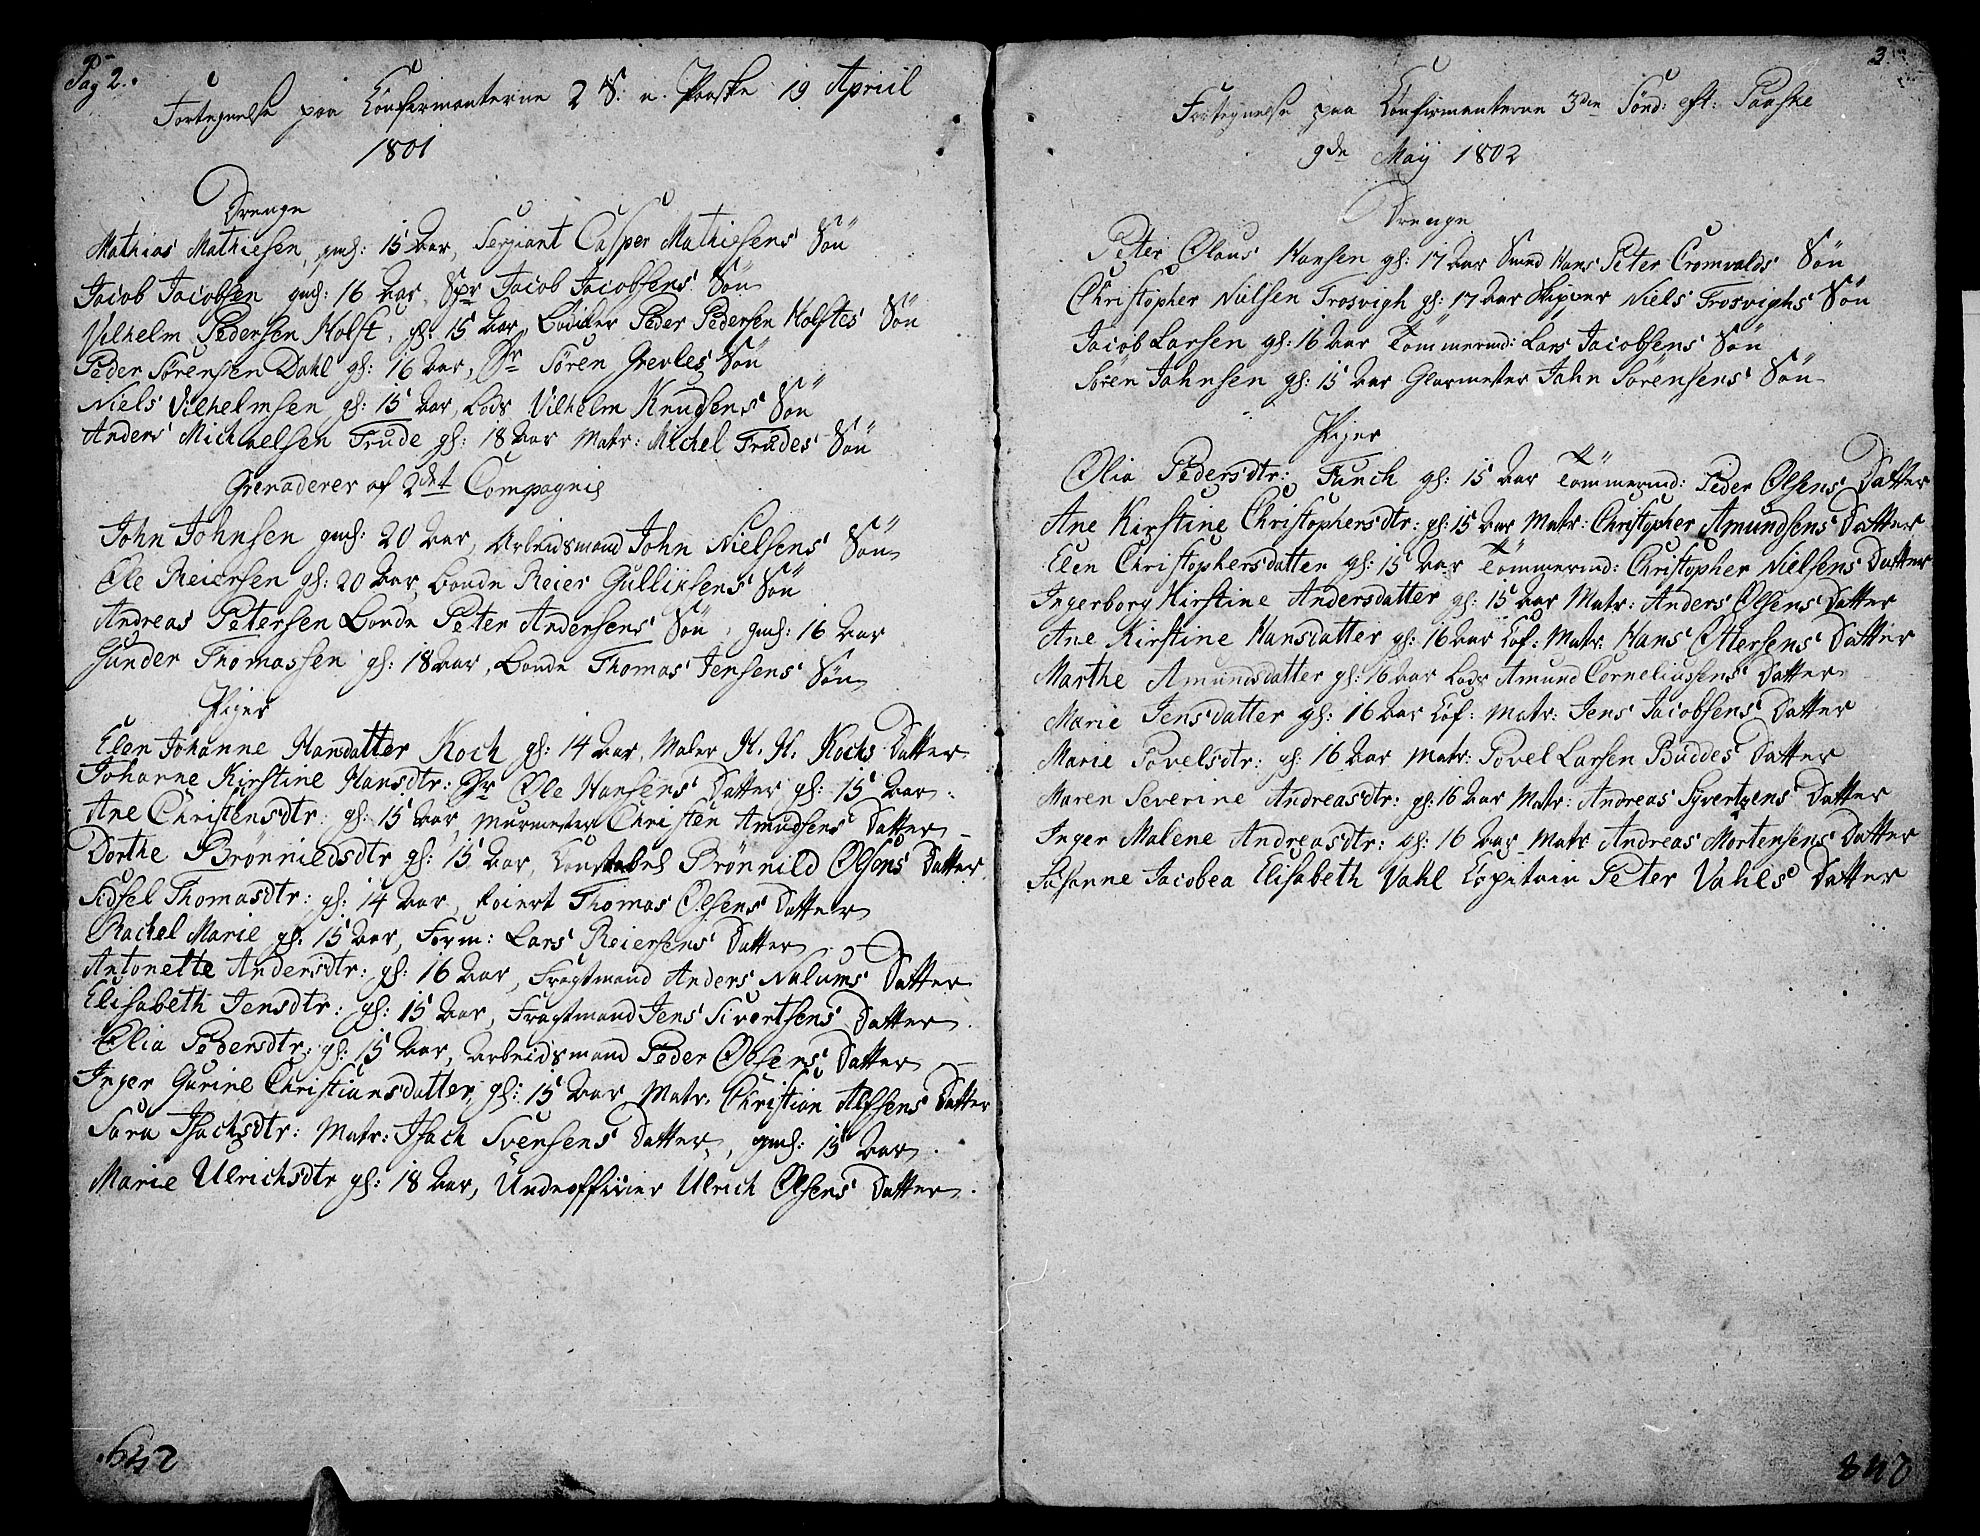 Pag 2.
Fortegnelse paa Confirmanterne 2 S: e. Paaske 19 April
1801
Drenge
Mathias Mathiesen, gml: 15 Aar, Sergiant Casper Mathiesens Søn
Jacob Jacobsen gml: 16 Aar, Spr Jacob Jacobsens Søn
Vilhelm Pedersen Holst, gl: 15 Aar, Peder Pedersen Holstes Søn
Peder Sørensen Dahl gl: 16 Aar, Sr Søren Grerles Søn
Niels Vilhelmsen gl: 15 Aar, Lods Vilhelm Knudsens Søn
Anders Michaelsen Trude gl: 18 Aar Matr: Michel Trudes Søn
Grenaderer af 2det Compagnie
John Johnsen gml: 20 Aar, Arbeidsmand John Nielsens Søn
Ole Reiersen gl: 20 Aar, Bonde Reier Gulliksens Søn
Andreas Petersen Bonde Peter Andersens Søn, gml: 16 Aar
Gunder Thomassen gl: 18 Aar, Bonde Thomas Jensens Søn
Piger
Elen Johanne Hansdatter Koch gl: 14 Aar, Maler H. H. Kochs Datter
Johanne Kirstine Hansdtr: Sr Ole Hansens Datter gl: 15 Aar.
Ane Christensdtr: gl: 15 Aar, Murmester Christen Amudsens Datter
Dorthe Brønnildsdtr gl: 15 Aar, Constabel Brønnild Olsens Datter.
Sidsel Thomasdtr: gl: 14 Aar, Thomas Olsens Datter
Rachel Marie gl: 15 Aar, Form: Lars Reiersens Datter
Antonette Andersdtr: gl: 16 Aar, Fragtmand Anders Nalums Datter
Elisabeth Jensdtr: gl: 15 Aar, Fragtmand Jens Sivertsens Datter.
Olia Pedersdtr: gl: 15 Aar, Arbeidsmand Peder Olsens Datter
Inger Gurine Christiansdatter, gl: 15 Aar Matr. Christian Alfsens Datter
Sara Isachsdtr: Matr: Isach Svensens Datter, gml: 15 Aar.
Marie Ulrichsdtr gl: 18 Aar, Underofficier Ulrich Olsens Datter.
3
Fortegnelse paa Confirmanterne 3die Sønd: eft: Paaske
9de May 1802
Drenge
Peter Olaus Hansen gl: 17 Aar Smed Hans Peter Cromvalds Søn
Christopher Nielsen Trosvigh gl: 17 Aar Skipper Niels Trosvighs Søn
Jacob Larsen gl: 16 Aar Tømmermd: Lars Jacobsens Søn
Søren Jahnsen gl: 15 Aar Glarmester Jahn Sørensens Søn
Piger
Olia Pedersdtr: Funch gl: 15 Aar Tømmermd: Peder Olsens Datter
Ane Kirstine Christophersdtr: gl: 15 Aar Matr: Christopher Amundsens Datter
Elen Christophersdatter gl: 15 Aar Tømmermd: Christopher Nielsens Datter
Ingerborg Kirstine Andersdatter gl: 15 Aar Matr: Anders Olsens Datter
Ane Kirstine Hansdatter gl: 16 Aar Cof: Matr: Hans Ottersens Datter
Marthe Amundsdatter gl: 16 Aar Lods Amund Corneliussens Datter
Marie Jensdatter gl: 16 Aar Cof: Matr: Jens Jacobsens Datter
Marie Povelsdtr: gl: 16 Aar Matr: Povel Larsen Buddes Datter
Maren Severine Andreasdtr: gl: 16 Aar Matr: Andreas Syvertzens Datter
Inger Malene Andreasdtr: gl: 16 Aar Matr: Andreas Mortensens Datter
Susanne Jacobea Elisabeth Vahl Capitain Peter Vahls Datter